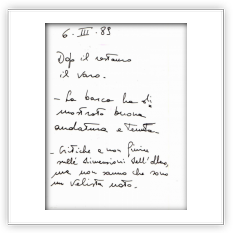 6 - III - 89
Dopo il restauro
il varo.
- La barca ha di
mostrato buona
andatura e tenuta
- Critiche a non finire
sulle dimensioni dell'albero,
ma non sanno che sono
un velista nato.